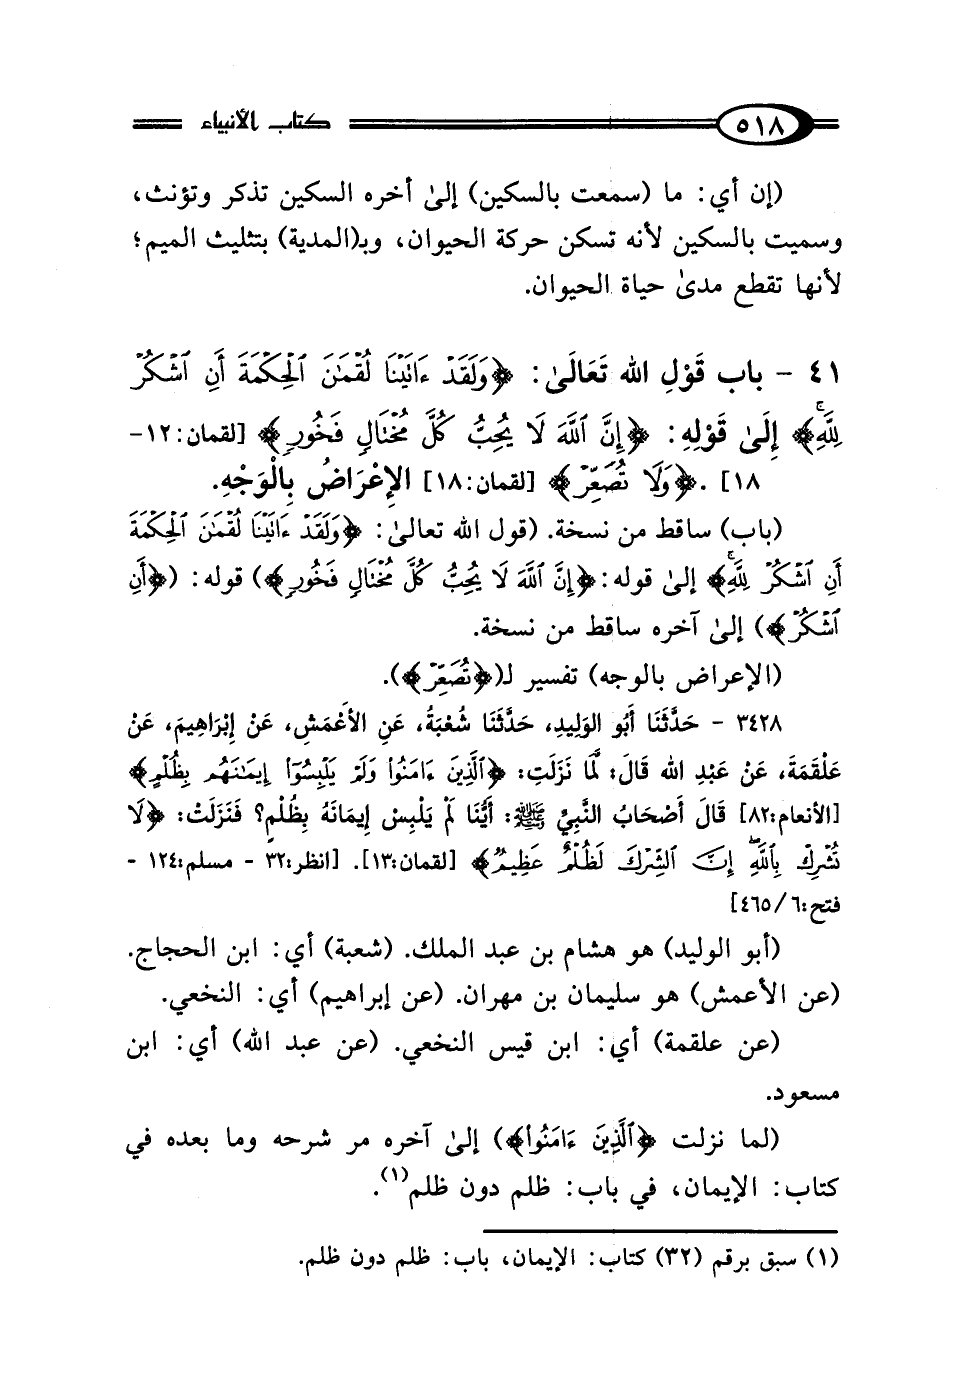 ٥١٨ كتاب الأنبياء
(إن أي: ما (سمعت بالسكين) إلىٰ أخره السكين تذكر وتؤنث،
وسميت بالسكين لأنه تسكن حركة الحيوان، وبـ(المدية) بتثليث الميم؛
لأنها تقطع مدىٰ حياة الحيوان.
٤١ - باب قَوْلِ الله تَعَالَىٰ: ﴿وَلَقَدْ ءَاتَيْنَا لُقْمَٰنَ ٱلْحِكْمَةَ أَنِ ٱشْكُرْ
لِلَّهِۚ﴾ إِلَىٰ قَوْلِهِ: ﴿إِنَّ ٱللَّهَ لَا يُحِبُّ كُلَّ مُخْتَالٍ فَخُورٍ﴾ [لقمان: ١٢-
١٨]. ﴿وَلَا تُصَعِّرْ﴾ [لقمان: ١٨] الإِعْرَاضُ بِالْوَجْهِ.
(باب) ساقط من نسخة. (قول الله تعالىٰ: ﴿وَلَقَدْ ءَاتَيْنَا لُقْمَٰنَ ٱلْحِكْمَةَ
أَنِ ٱشْكُرْ لِلَّهِۚ﴾ إلىٰ قوله: ﴿إِنَّ ٱللَّهَ لَا يُحِبُّ كُلَّ مُخْتَالٍ فَخُورٍ﴾) قوله: (﴿أَنِ
ٱشْكُرْ﴾) إلىٰ آخره ساقط من نسخة.
(الإعراض بالوجه) تفسير لـ(﴿تُصَعِّرْ﴾).
٣٤٢٨ - حَدَّثَنَا أَبُو الوَلِيدِ، حَدَّثَنَا شُعْبَةُ، عَنِ الأَعْمَشِ، عَنْ إِبْرَاهِيمَ، عَنْ
عَلْقَمَةَ، عَنْ عَبْدِ الله قَالَ: لَمَّا نَزَلَتِ: ﴿ٱلَّذِينَ ءَامَنُوا۟ وَلَمْ يَلْبِسُوٓا۟ إِيمَٰنَهُم بِظُلْمٍ﴾
[الأنعام: ٨٢] قَالَ أَصْحَابُ النَّبِيِّ ﷺ: أَيُّنَا لَمْ يَلْبِسْ إِيمَانَهُ بِظُلْمٍ؟ فَنَزَلَتْ: ﴿لَا
تُشْرِكْ بِٱللَّهِۖ إِنَّ ٱلشِّرْكَ لَظُلْمٌ عَظِيمٌ﴾ [لقمان: ١٣]. [انظر: ٣٢ - مسلم: ١٢٤ -
فتح: ٤٦٥/٦]
(أبو الوليد) هو هشام بن عبد الملك. (شعبة) أي: ابن الحجاج.
(عن الأعمش) هو سليمان بن مهران. (عن إبراهيم) أي: النخعي.
(عن علقمة) أي: ابن قيس النخعي. (عن عبد الله) أي: ابن
مسعود.
(لما نزلت ﴿ٱلَّذِينَ ءَامَنُوا۟﴾) إلىٰ آخره مر شرحه وما بعده في
كتاب: الإيمان، في باب: ظلم دون ظلم(١).
(١) سبق برقم (٣٢) كتاب: الإيمان، باب: ظلم دون ظلم.